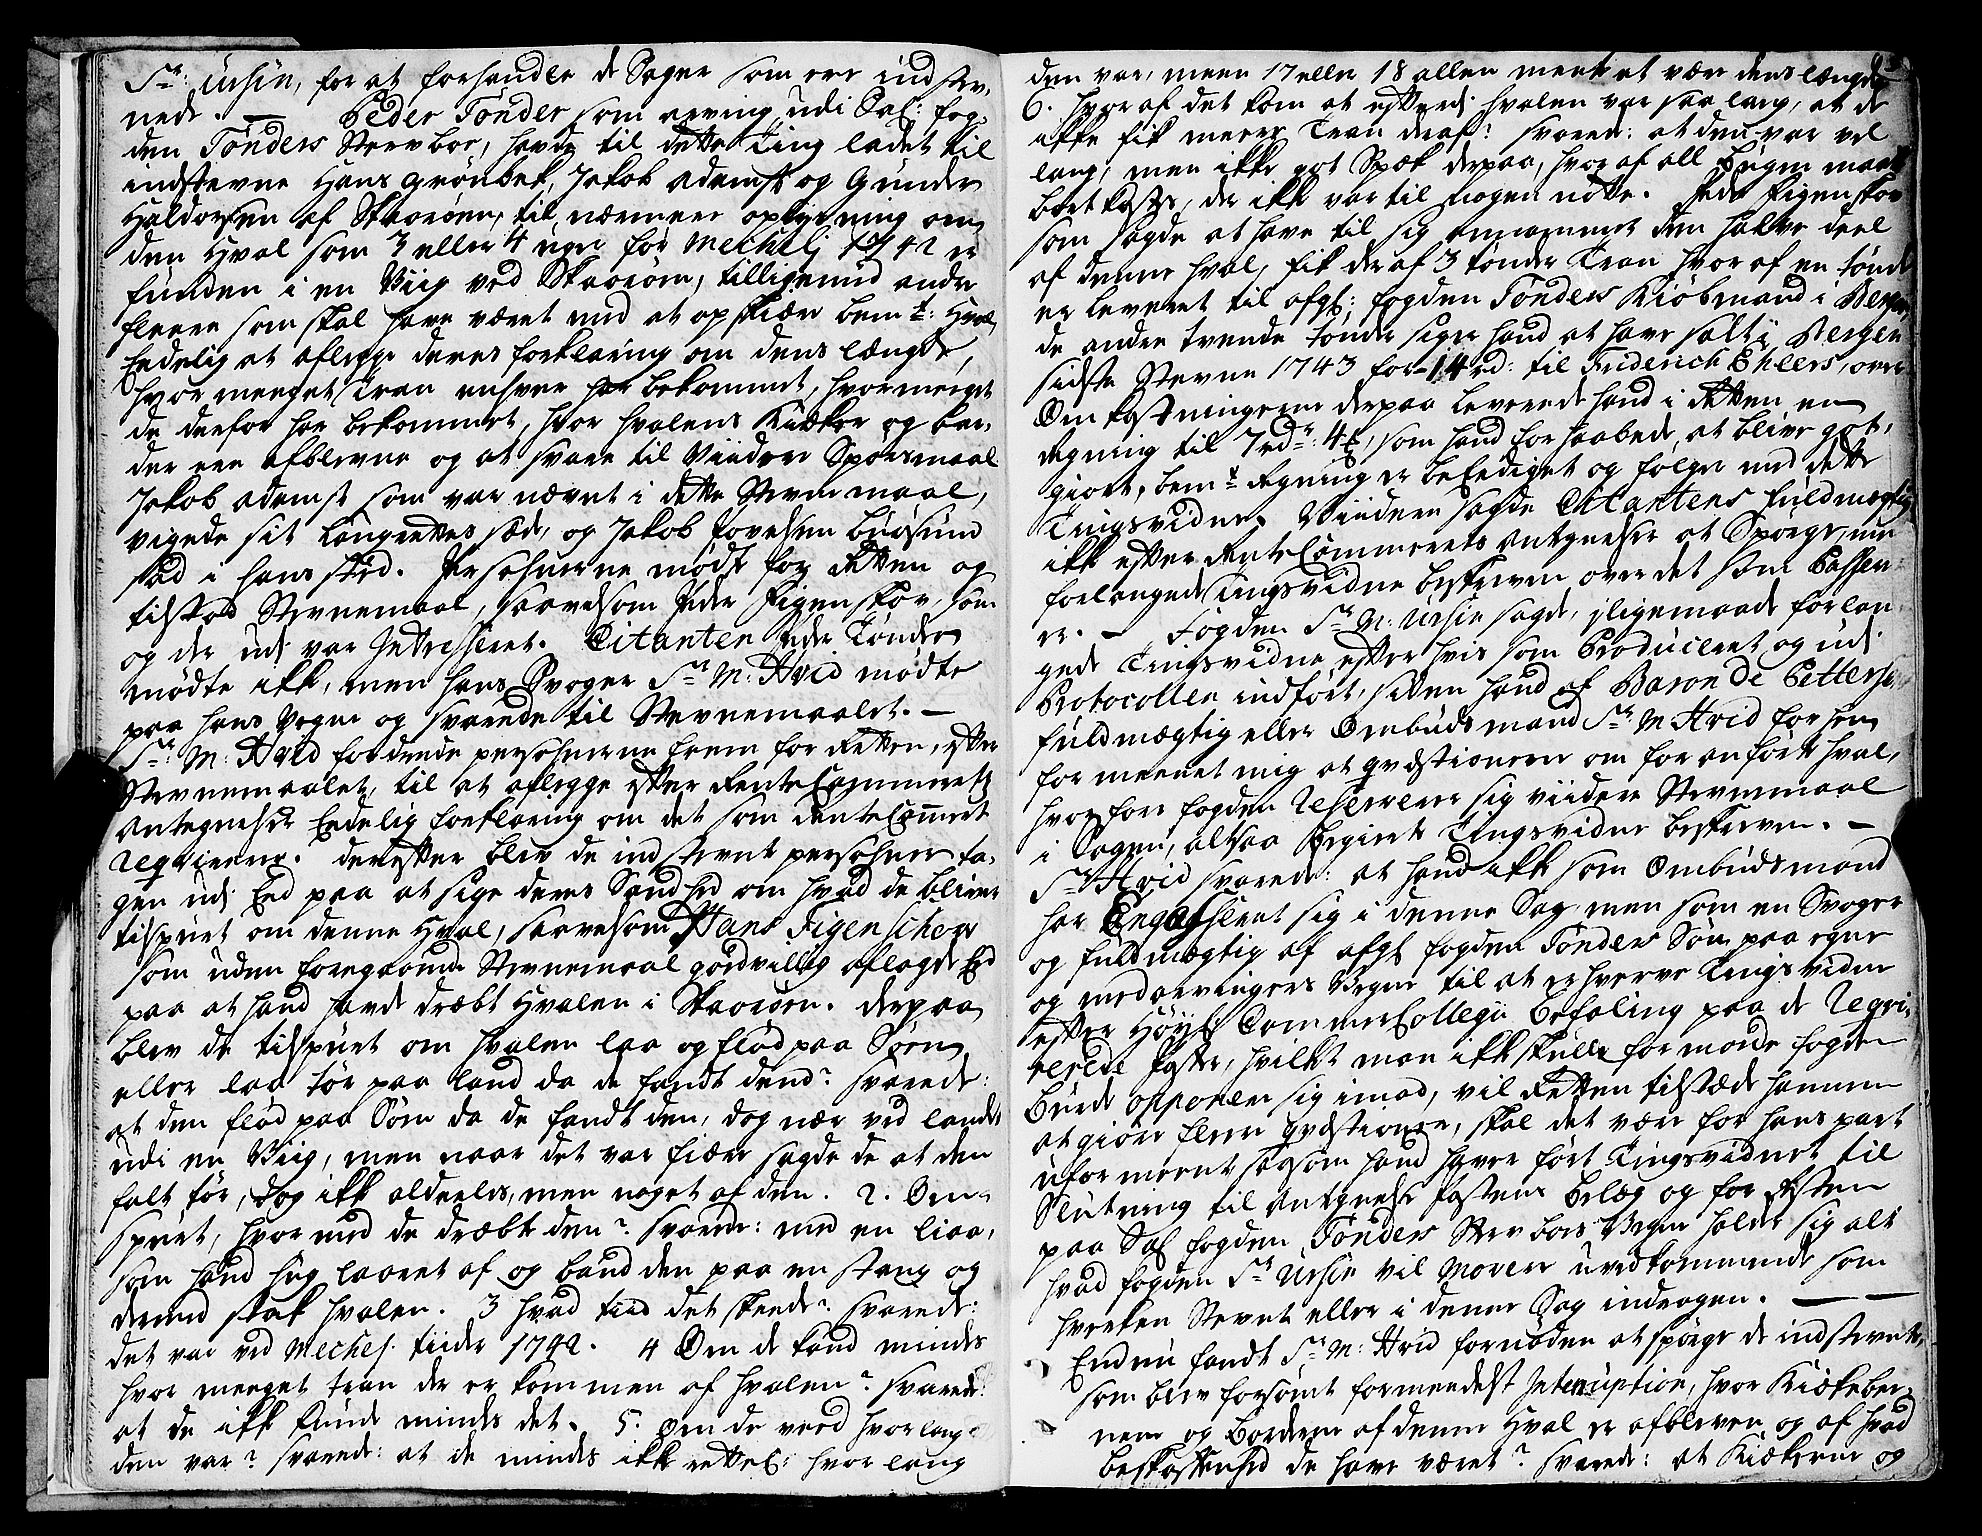 Sr: Ursin, for at forhandle de Sager som ere indstev,,
nede. — Peder Tønder som arving udi Sal: fog,,
den Tønders Sterbboe, hafde til dette Ting ladet til
indstevne Hans Grønbek, Jakob Adamss: og Gunder
Haldorsen af Skaarøen, til nærmere oplysning om
den Hval som 3 eller 4 uger før Mechelj 1742 er
funden i en Viig ved Skaarøen, tilligemed andre
fleere som skal have været med at opskiære bemte: Hval
Endelig at aflegge deres forklaring om dens længde,
hvor meeget Tran enhver har bekommet, hvor meeget
de derfor har bekommet, hvor Hvalens Kiæker og bar,,
der ere afblevne og at svare til Viidere Spørsmaal
Jakob Adamss: som var nævnt i dette Stevnemaal,
vigede sit laugrettes sæde, og Jakob Jovelsen Buøsund
sad i hans sted. Persohnerne mødte for Retten og
tilstod Stevnemaal, saavelsom Peder Figenskov, som
og der udj var Intresseret. Citanten Peder Tønder
mødte ikke, men hans Svoger Sr M: Hvid mødte
paa hans Vegne og svarede til Stevnemaalet. —
Sr: M: Hvid fordrede persohnerne frem for Retten, efter
Stevnemaalet, til at aflegge efter RenteCammerets
Antegnelse Endelig forklaring om det som RenteCameret
Reqvirerer. Derefter blev de indstevnte persohner ta,,
gen udj Eed paa at sige deres Sandhed om hvad de bliver
tilspurt om denne Hval, saavelsom Hans Figenschov
som uden foregaaende Stevnemaal godvillig aflagde Eed
paa at hand hafde dræbt Hvalen i Skaarøen. Derpaa
blev de tilspurt om Hvalen laae og flød paa Søen
eller laae tør paa land da de fandt dend? svarede:
at den flød paa Søen da de fandt den, dog nær ved landet
udi en Viig, men naar det var fiære sagde de at den
falt tør, dog ikke aldeeles, men noget af den. 2. Om,,
spurt, hvor med de dræbte den? svarede: med en liaae,
som hand hug laaret af og band den paa en stang og
dermed stak Hvalen. 3 hvad tiid det skeede? svarede:
det var ved Mechels. tiider 1742. 4 Om de kand mindes
hvor meeget tran der er kommen af Hvalen? svarede:
at de ikke kunde mindes det. 5. Om de veed hvor lang
den var? svarede: at de mindes ikke rettel: hvor lang
den var, meen 17 eller 18 allen meente at være dens længde
6. hvor af det kom at efterdj Hvalen var saa lang, at de
ikke fik meere Tran deraf? svarede: at den var vel
lang, men ikke got Spæk derpaa, hvor af all bugen maatte
bortkastes, der ikke var til nogen nøtte. Peder Figenskov
som sagde at have til sig annammet den halve deel
af denne Hval, fik der af 3 tønder Tran hvor af en tønde
er leveret til afg: fogden Tønders Kiøbmand i Bergen,
de andre tvende tønder siger hand at have solt i Bergen
sidste Stevne 1743 for 14 rd: til Friderich Ehlers, over
Omkostningerne derpaa leverede hand i Retten en
Regning til 7 rdr: 4 ß, som hand forhaabede at blive got,,
giort, bemte Regning er beEediget og følger med dette
Tingsvidne. Viidere sagde Citantens fuldmægtig
ikke efter RenteCammerets Antegnelse at Spørge, men
forlangede Tingsvidne beskreven over det som Passer,,
er. — Fogden Sr M: Ursin sagde, iligemaade forlan,,
gede Tingsvidne efter hvis som Produceret og udj
Protocollen indført, siden hand af Baron de Petterse
fuldmægtig eller Ombudsmand Sr M Hvid har hen
formeenet mig at qvæstionere om for anførte Hval,
hvorfore fogden Reserverer sig viidere Stevnemaal
i Sagen, altsaa begierte Tingsvidne beskreven. —
Sr Hvid svarede: at hand ikke som Ombudsmand
har Engasseret sig i denne Sag, men som en Svoger
og fuldmægtig af afg: fogden Tønders Søn paa egne
og medarvingers Vegne til at erhverve Tingsvidne
efter Høyl: CammerCollegii Befaling paa de Reqvi,,
rerede Poster, hvilket man ikke skulle formode fogden
burde opponere sig imod, vil Retten tilstæde hannem
at giøre fleere qvæstioner, skal det være for hans part
uformeent saasom hand haver ført Tingsvidnet til
Slutning til Antegnelse Postens Belæg og for Resten
paa Sal: fogden Tønders Sterbboes Vegne holder sig alt
hvad fogden Sr Ursin vil Movere uvedkommende som
hverken Stevnt eller i denne Sag indragen. — —
Endnu fandt Sr M: Hvid fornøden at spørge de indstevnte,
som blev forsømt formedelst Interruption, hvor Kiækeber,,
nene og Borderne af denne Hval er afbleven og af hvad
beskaffenhed de have været? svarede: at Kiækerne og